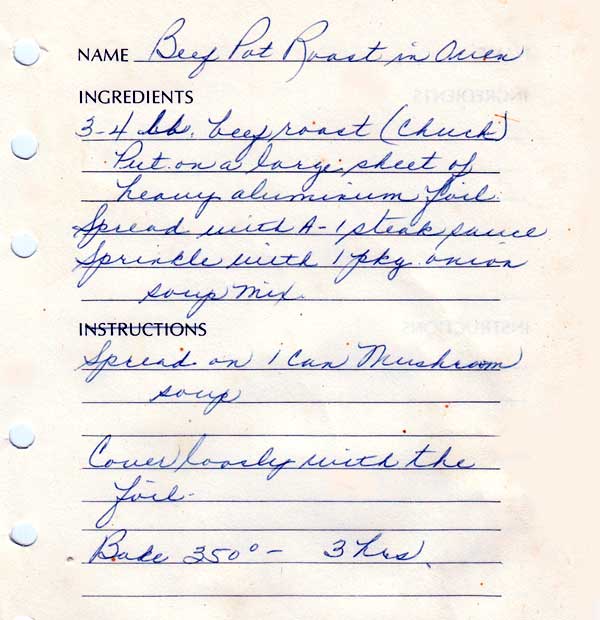 NAME Beef Pot Roast in Oven
INGREDIENTS
3-4 lb. beef roast (Chuck)
Put on a large sheet of
heavy aluminum foil.
Spread with A-1 steak sauce
Sprinkle with 1 pkg. onion
soup mix.
INSTRUCTIONS
Spread on 1 can Mushroom
soup
Cover loosly with the
foil.
Bake 350° - 3 hrs.